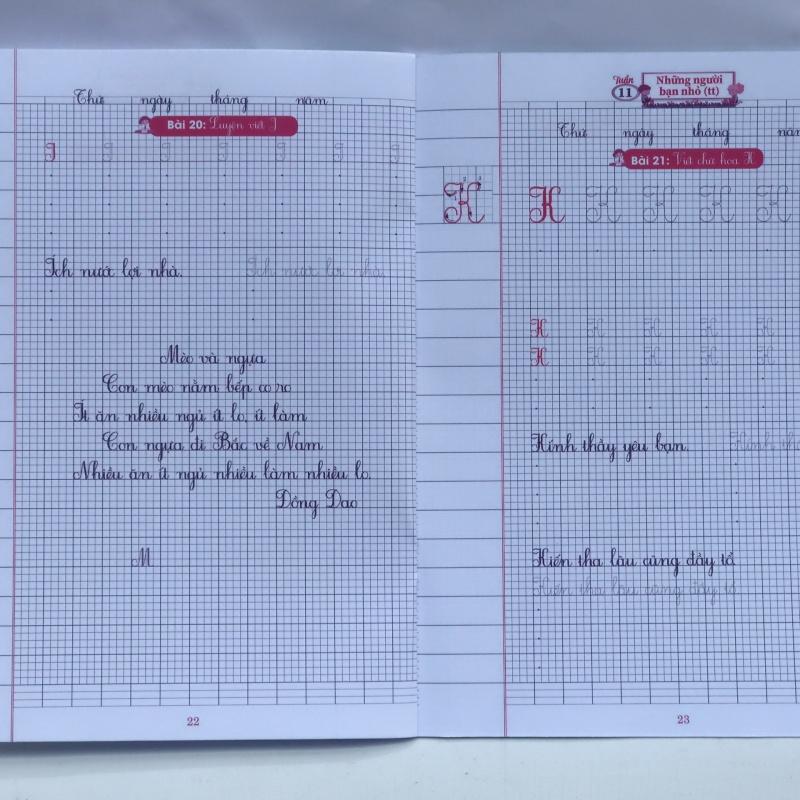 Thứ ngày tháng năm
Bài 20: Luyện viết I
I I I I I I I
Ích nước lợi nhà. Ích nước lợi nhà.
Mèo và ngựa
Con mèo nằm bếp co ro
Ít ăn nhiều ngủ ít lo, ít làm
Con ngựa đi Bắc về Nam
Nhiều ăn ít ngủ nhiều làm nhiều lo.
Đồng Dao
M
22
Tuần 11
Những người bạn nhỏ (tt)
Thứ ngày tháng năm
Bài 21: Viết chữ hoa K
K K K K K K
K K K K K
K K K K K
Kính thầy yêu bạn. Kính th
Kiến tha lâu cũng đầy tổ
Kiến tha lâu cũng đầy tổ
23